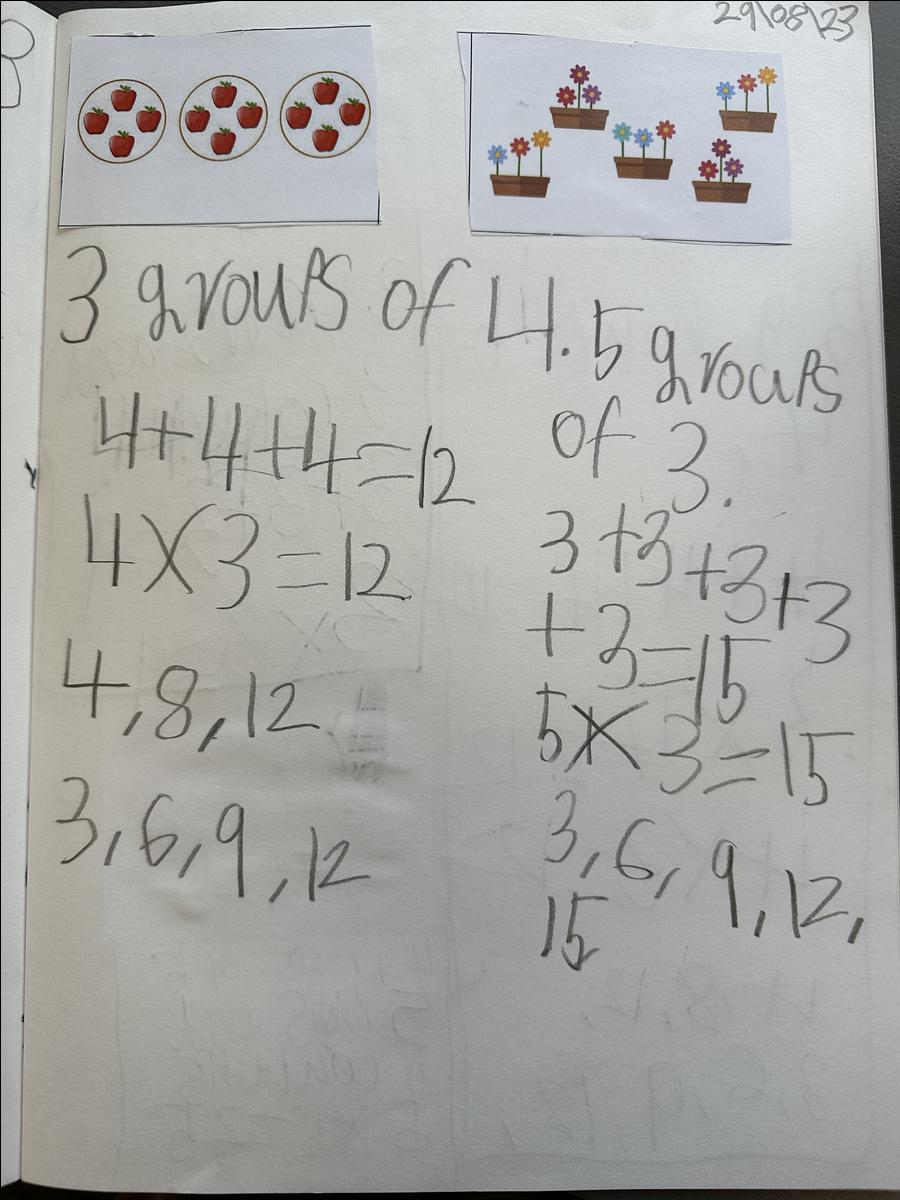 29\08\23
3 groups of 4.
4+4+4=12
4X3=12
4,8,12
3,6,9,12
5 groups
of 3.
3+3+3+3
+3=15
5X3=15
3,6,9,12,
15